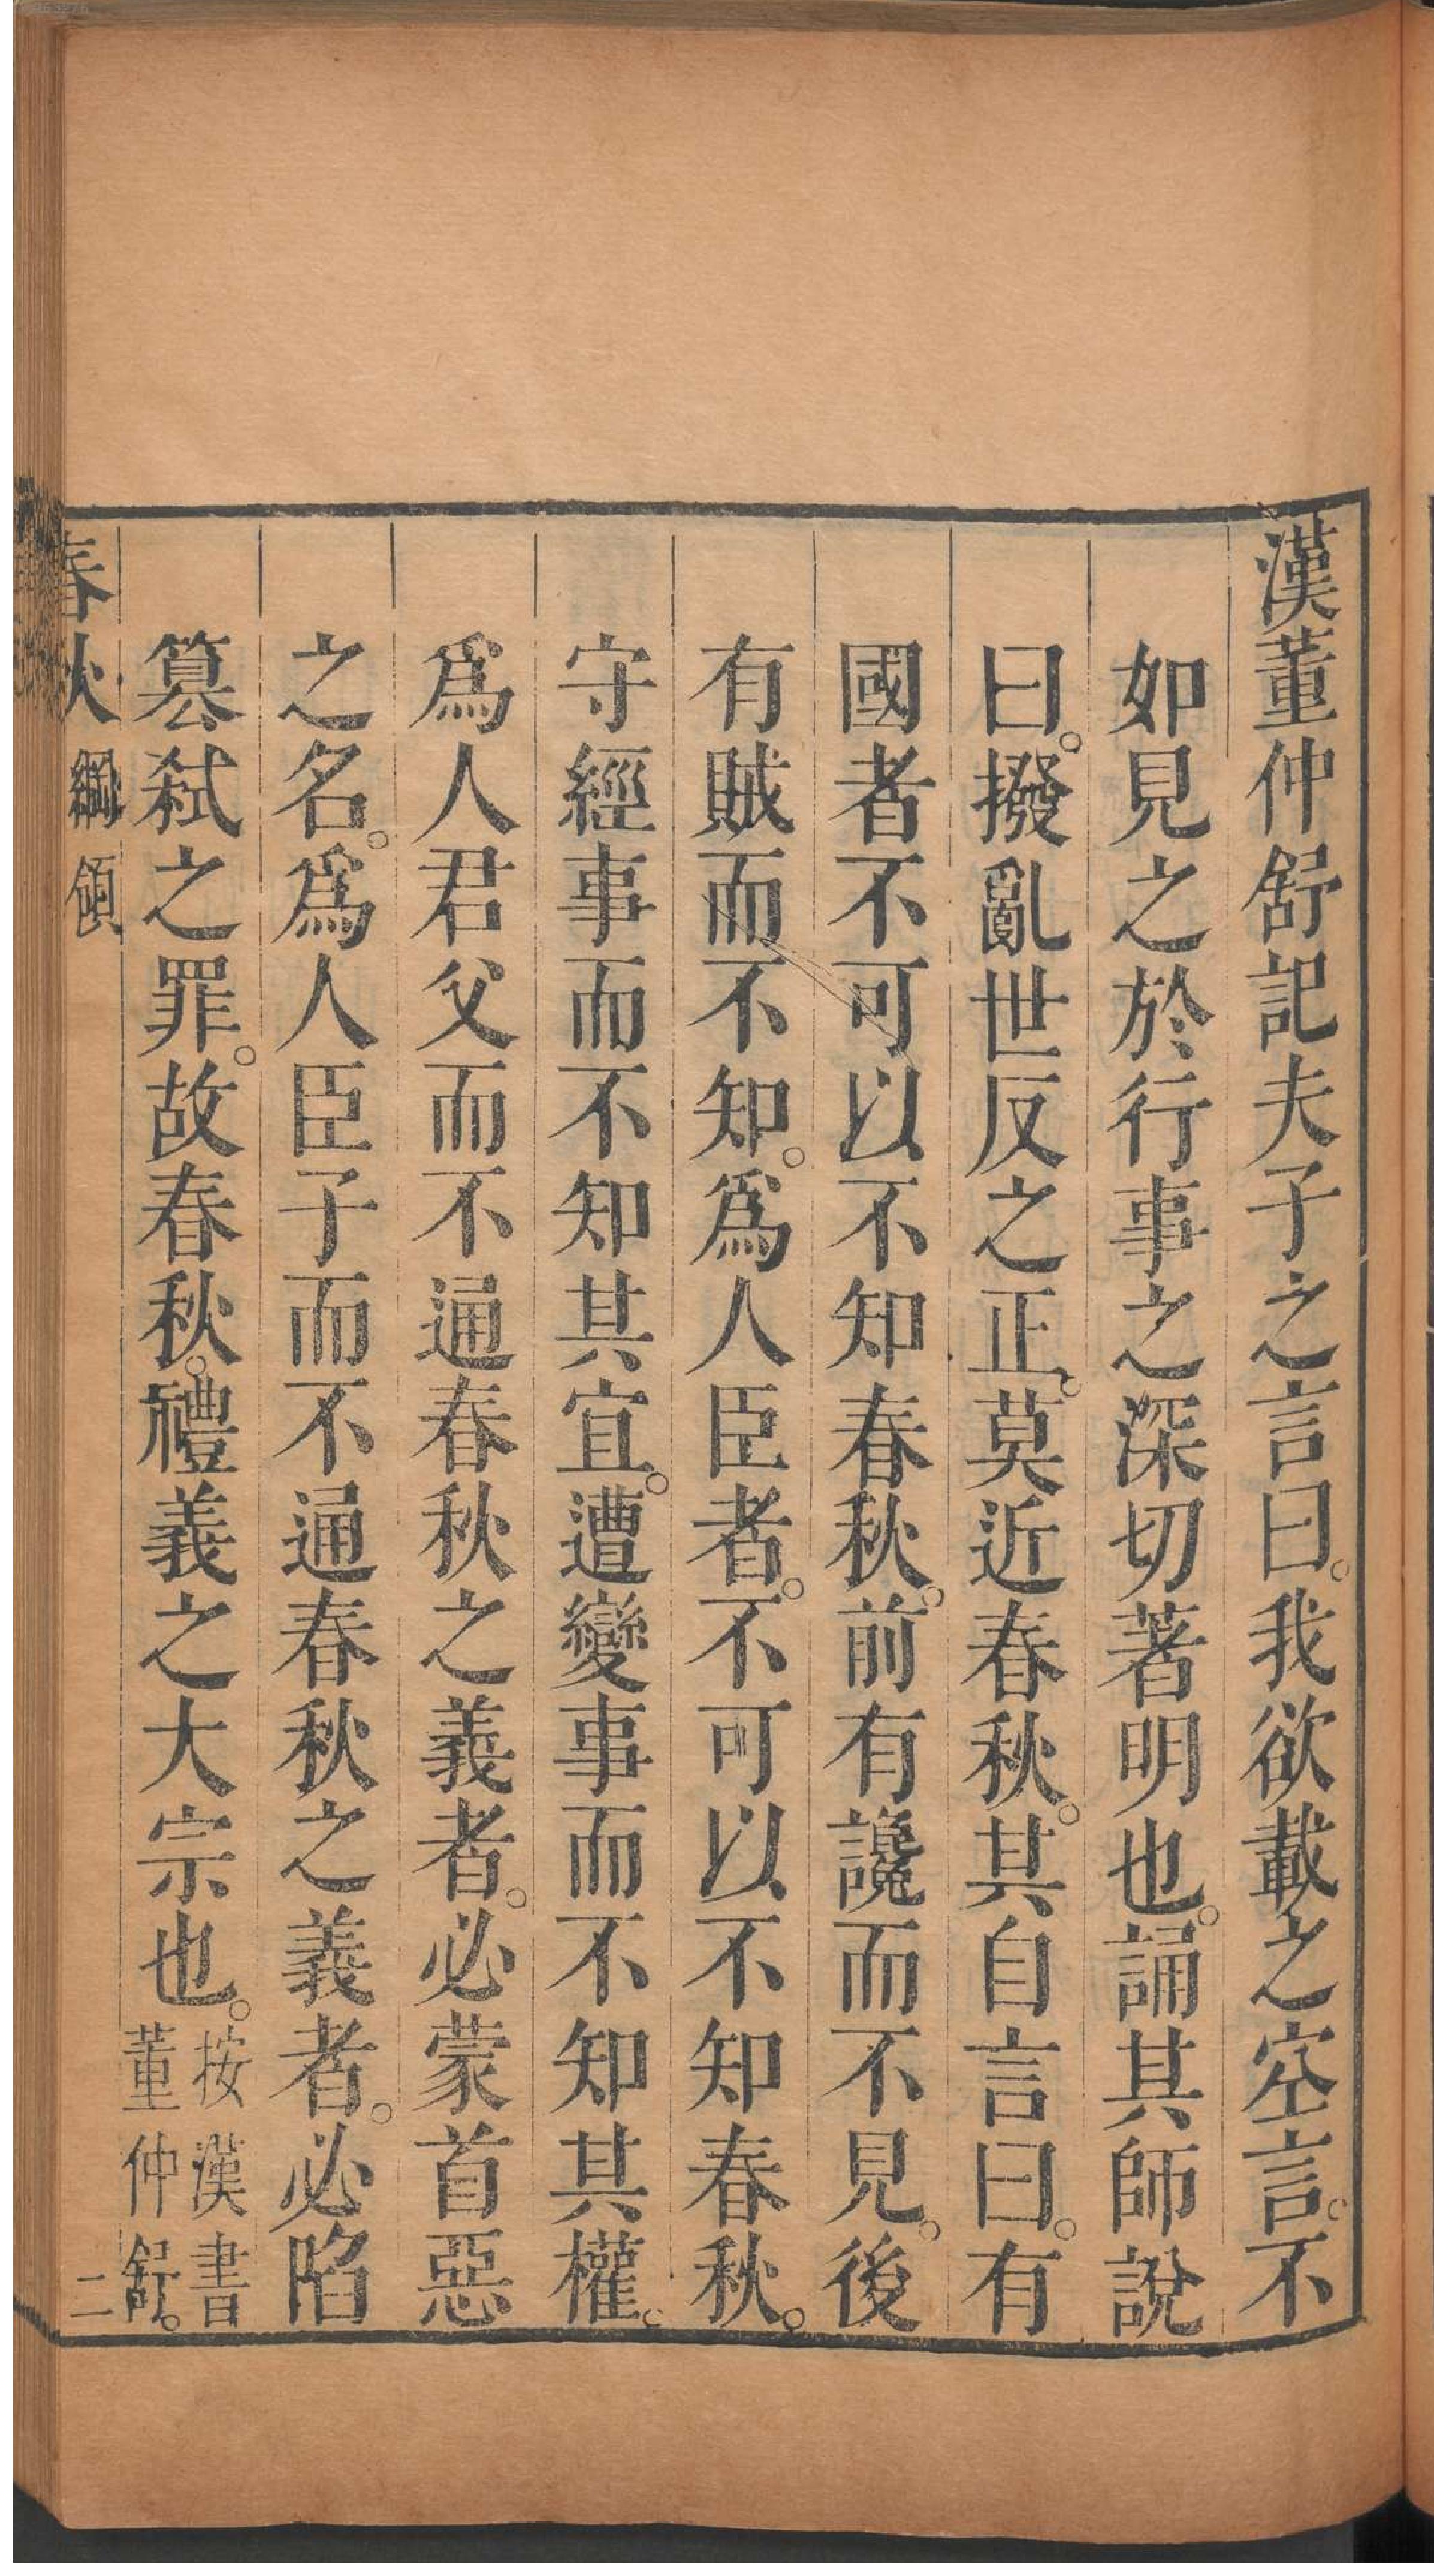 漢董仲舒記夫子之言曰。我欲載之空言。不
如見之於行事之深切著明也。誦其師說
曰。撥亂世反之正。莫近春秋。其自言曰。有
國者不可以不知春秋。前有讒而不見。後
有賊而不知。爲人臣者。不可以不知春秋。
守經事而不知其宜。遭變事而不知其權。
爲人君父而不通春秋之義者。必蒙首惡
之名。爲人臣子而不通春秋之義者。必陷
篡弑之罪。故春秋。禮義之大宗也。按漢書
董仲舒。
春秋 綱領 二